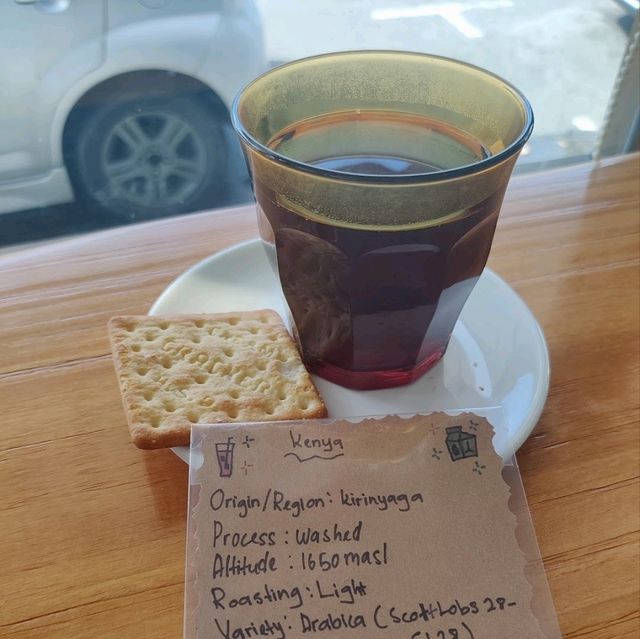 Kenya
Origin/Region: Kirinyaga
Process: Washed
Altitude: 1650 masl
Roasting: Light
Variety: Arabica (Scott Labs 28-
SL28)